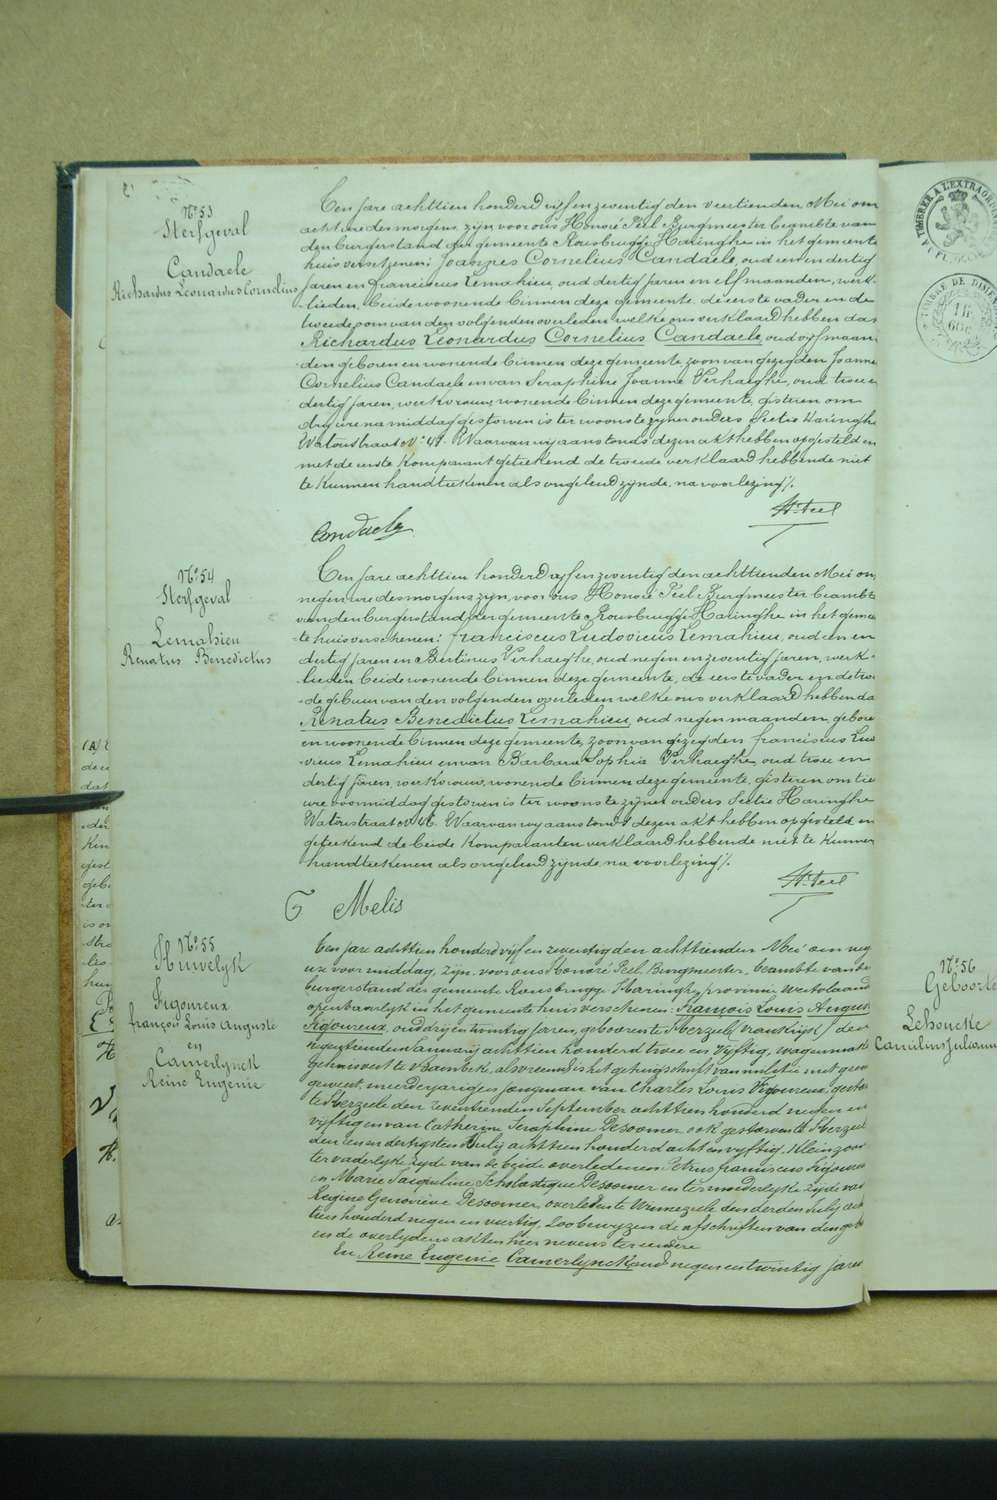 Nº 53
Sterfgeval
Candaele
Richardus Leonardus Cornelius
Een jare achttien honderd vijf en zeventig den veertienden Mei om
acht ure des morgens, zijn voor ons Honoré Peel Burgmeester beambte van
den burgerstand der gemeente Rousbrugge Haringhe in het gemeente
huis verschenen: Joannes Cornelius Candaele, oud een en dertig
jaren en Franciscus Lemahieu, oud dertig jaren en elf maanden, werk-
lieden, beide woonende binnen deze gemeente de eerste vader en de
tweede oom van den volgenden overleden welke ons verklaard hebben dat
Richardus Leonardus Cornelius Candaele, oud vijf maan-
den geboren en wonende binnen deze gemeente zoon van gezegden Joannes
Cornelius Candaele en van Seraphine Joanne Verhaeghe, oud twee en
dertig jaren, werkvrouw, wonende binnen deze gemeente, gisteren om
drij ure namiddag gestorven is ter woonste zijner ouders Sectie Haringhe
Watoustraat Nº 48. Waarvan wij aanstonds dezen akt hebben opgesteld en
met de eerste komparant geteekend de tweede verklaard hebbende niet
te kunnen handteekenen als ongeleerd zijnde, na voorlezing /.
Candaele
H. Peel
Nº 54
Sterfgeval
Lemahieu
Renatus Benedictus
Een jare achttien honderd vijf en zeventig den achttienden Mei om
negen ure des morgens zijn, voor ons Honoré Peel Burgmeester beambte
van den burgerstand der gemeente Rousbrugge Haringhe in het gemeen-
te huis verschenen: Franciscus Ludovicus Lemahieu, oud een en
dertig jaren en Bertinus Verhaeghe, oud negen en zeventig jaren, werk-
lieden beide wonende binnen deze gemeente, de eerste vader en de twee-
de gebuur van den volgenden overleden welke ons verklaard hebben dat
Renatus Benedictus Lemahieu, oud negen maanden, geboren
en woonende binnen deze gemeente, zoon van gezegden Franciscus Ludo
vicus Lemahieu en van Barbara Sophia Verhaeghe, oud twee en
dertig jaren, werkvrouw, wonende binnen deze gemeente, gisteren om tien
ure voormiddag gestorven is ter woonste zijner ouders Sectie Haringhe
Watoustraat Nº 48. Waarvan wij aanstonds dezen akt hebben opgesteld en
geteekend de beide komparanten verklaard hebbende niet te kunnen
handteekenen als ongeleerd zijnde na voorlezing /.
H. Peel
G Melis
Nº 55
Huwelijk
Figoureux
françois Louis Auguste
en
Camerlynck
Reine Eugenie
Een jare achttien honderd vijf en zeventig den achttienden Mei om negen
ure voormiddag, zijn voor ons Honoré Peel, Burgmeester, beambte van den
burgerstand der gemeente Rousbrugge Haringhe, provincie Westvlaanderen
openbaarlijk in het gemeente huis verschenen: François Louis Auguste
Figoureux, oud drij en twintig jaren, geboren te Herzeele (vrankrijk) den
negentienden January achttien honderd twee en vijftig, wagenmaker
gehuisvest te Bambeke
geweest, meerderjarigen jongman van Charles Louis Figoureux, gestorven
te Herzeele den zeventienden September achttien honderd negen en
vijftig en van Catherine Seraphine Desoomer ook gestorven te Herzeele
den een en dertigsten July achttien honderd acht en vijftig. Kleinzoon
ter vaderlijke zijde van de beide overledenen Petrus franciscus Figoureux
en Marie Jacqueline Scholastique Desoomer en ter moederlijke zijde van
Regine Genoviève Desoomer, overleden te Winnezeele den derden July acht
tien honderd negen en veertig. Zoo bewijzen de afschriften van den geboorte
en de overlydens akten hier nevens ter iedere
En Reine Eugenie Camerlynck oud negen en twintig jaren
Nº 56
Geboorte
Lehoucke
Camilius Julianus
TIMBRE DE DIMEN
1 fr.
60 c.
A TIMBRER A L'EXTRAORDIN